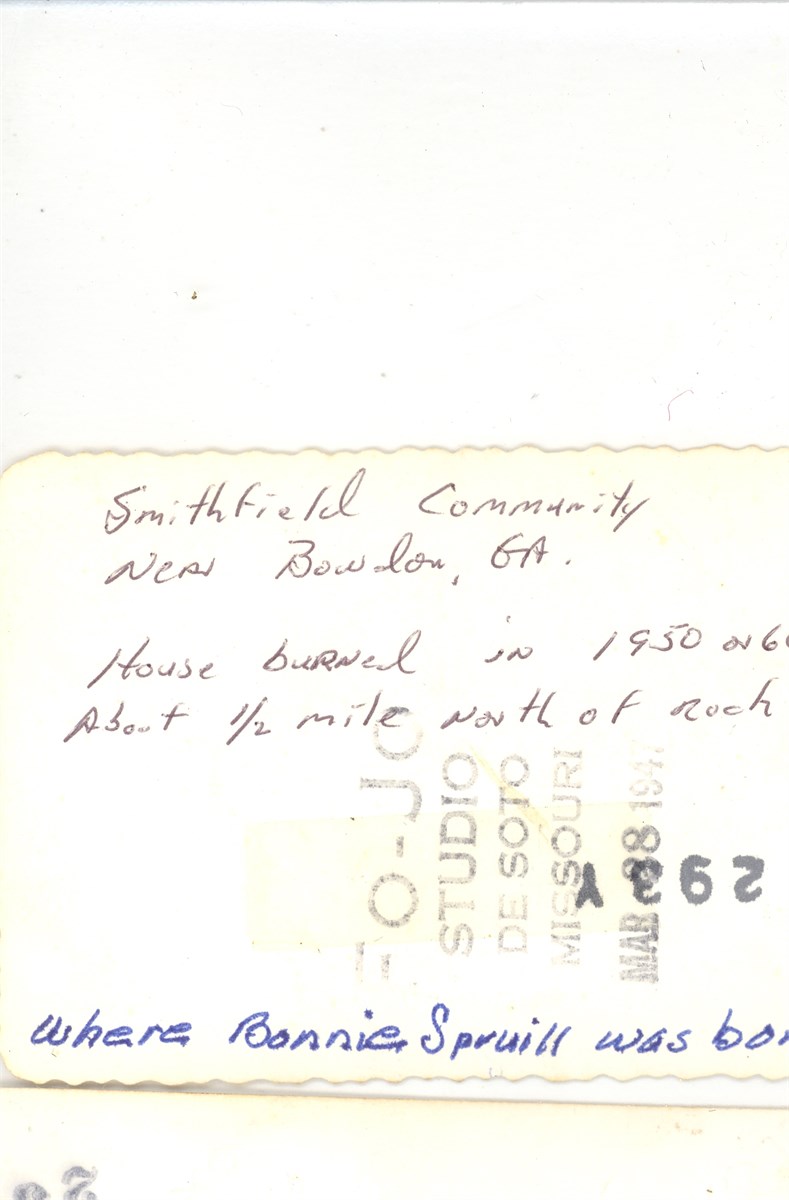 Smithfield Community
Near Bowdon, GA.
House burned in 1950 or 60
About 1/2 mile North of Rock
FO-JO
STUDIO
DE SOTO
MISSOURI
MAR 1947
Where Bonnie Spruill was bor